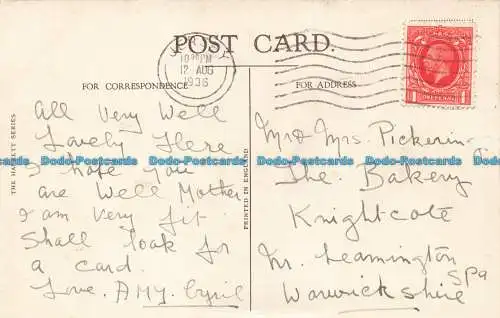 POST CARD.
10 PM
12 AUG
1936
ONE PENNY
1 1
FOR CORRESPONDENCE
FOR ADDRESS
All Very Well
Lovely Here
I hope you
are Well Mother
I am Very fit
Shall look for
a card.
Love. AMY. Cyril
THE SERIES
PRINTED IN ENGLAND
Mr & Mrs Pickering
The Bakery
Knightcote
Nr. Leamington
Spa
Warwickshire
Dodo-Postcards Dodo-Postcards Dodo-Postcards Dodo-Postcards
Dodo-Postcards Dodo-Postcards Dodo-Postcards Dodo-Postcards